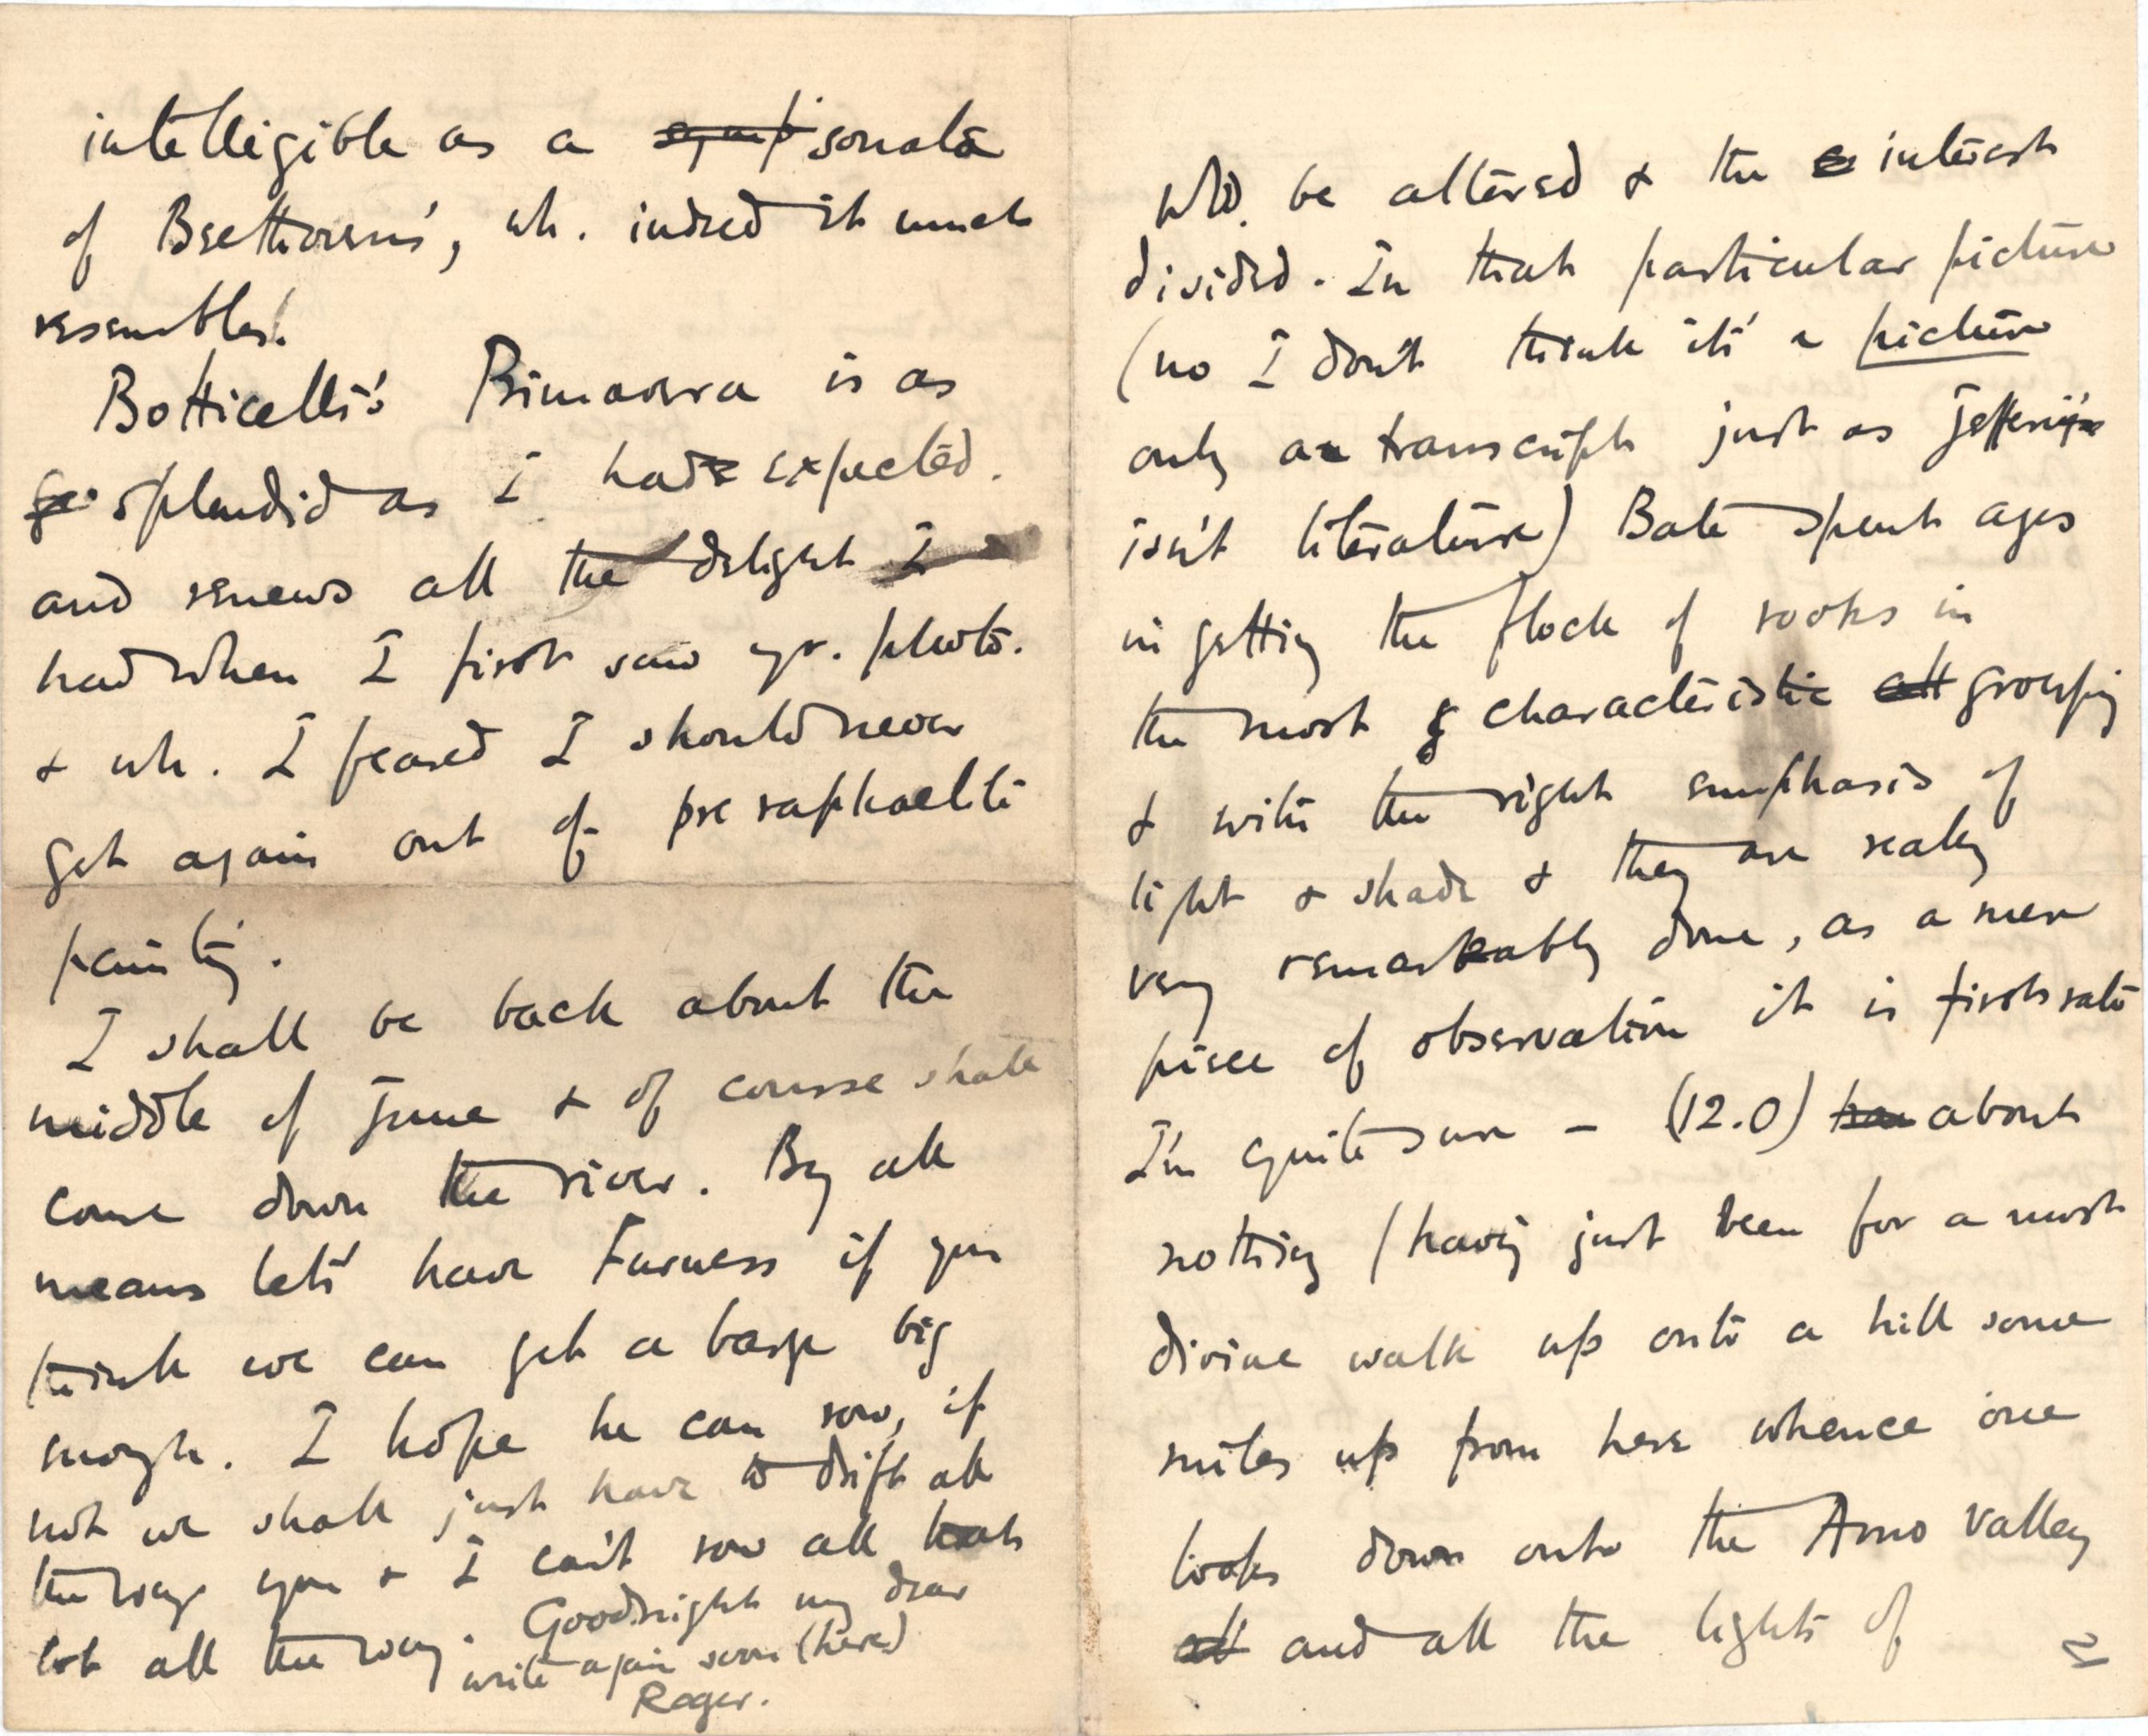 intelligible as a symp sonata
of Beethoven's, wh. indeed it much
resembles!
Botticelli's Primavera is as
splendid as I had expected.
and renews all the delight I
had when I first saw yr. photo.
& wh. I feared I should never
get again out of pre raphaelite
painting.
I shall be back about the
middle of June & of course shall
come down the river. By all
means let's have Furness if you
think we can get a barge big
enough. I hope he can row, if
not we shall just have to drift all
the way you & I can't row all that
lot all the way. Goodnight my dear
write again soon (here)
Roger.
wld. be altered & the interest
divided. In that particular picture
(no I don't think it's a picture
only a transcript just as Jefferies
isn't literature) Bate spent ages
in getting the flock of rooks in
the most characteristic all grouping
& with the right emphasis of
light & shade & they are really
very remarkably done, as a mere
piece of observation it is first rate
I'm quite sure – (12.0) about
nothing (having just been for a most
divine walk up onto a hill some
miles up from here whence one
looks down onto the Arno valley
all and all the lights of